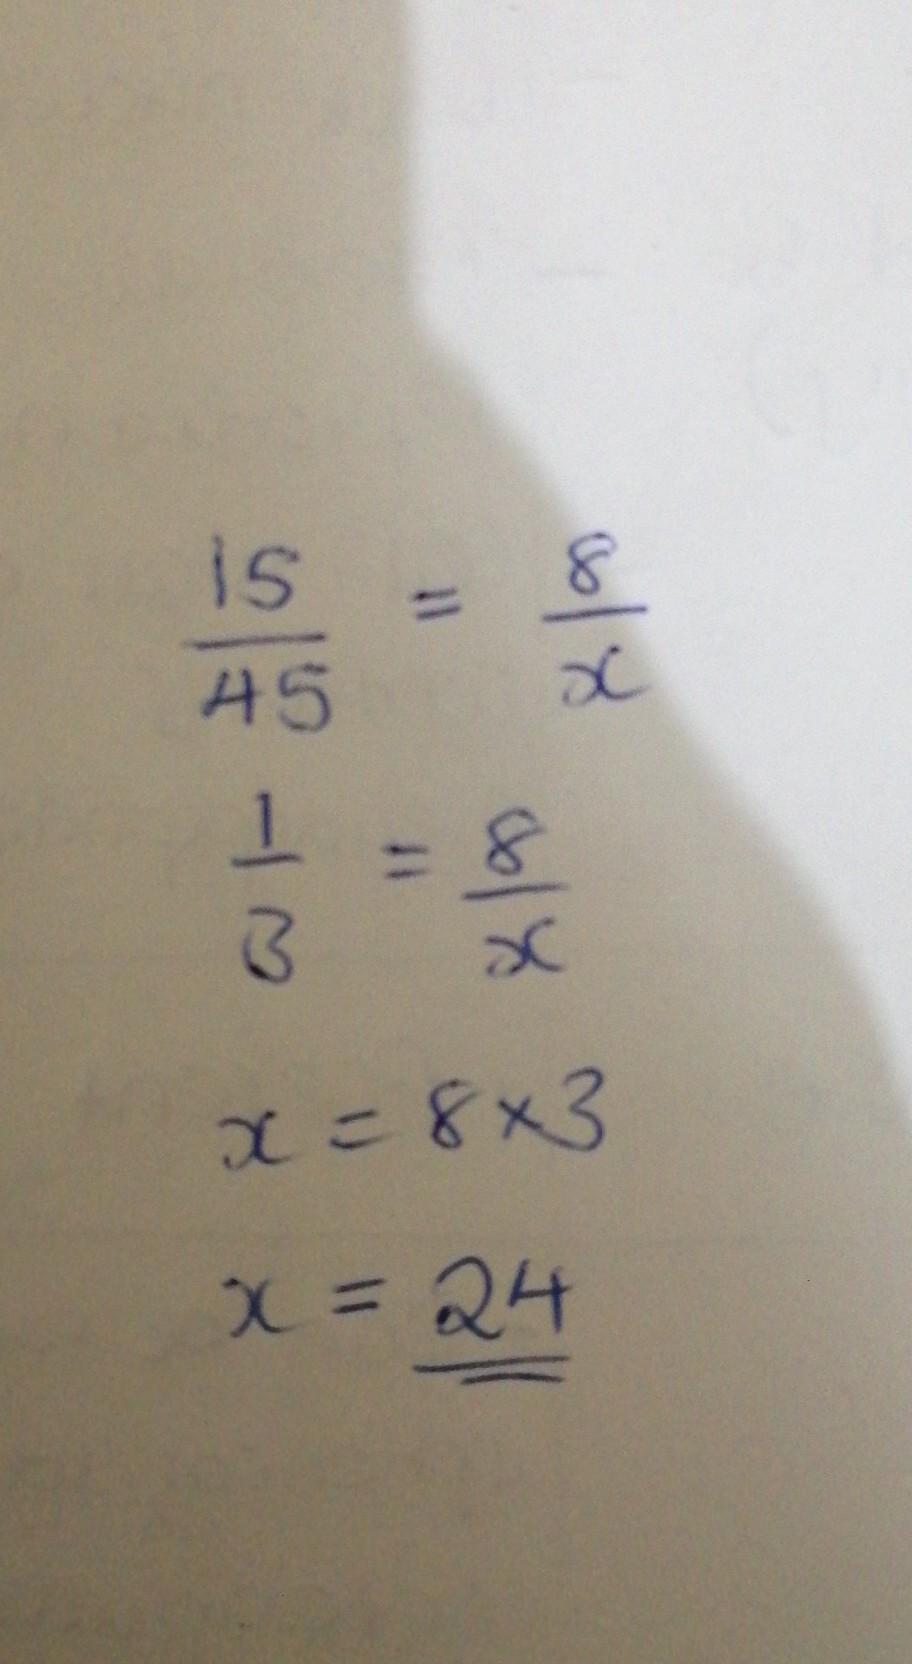 15/45 = 8/x
1/3 = 8/x
x = 8×3
x = 24